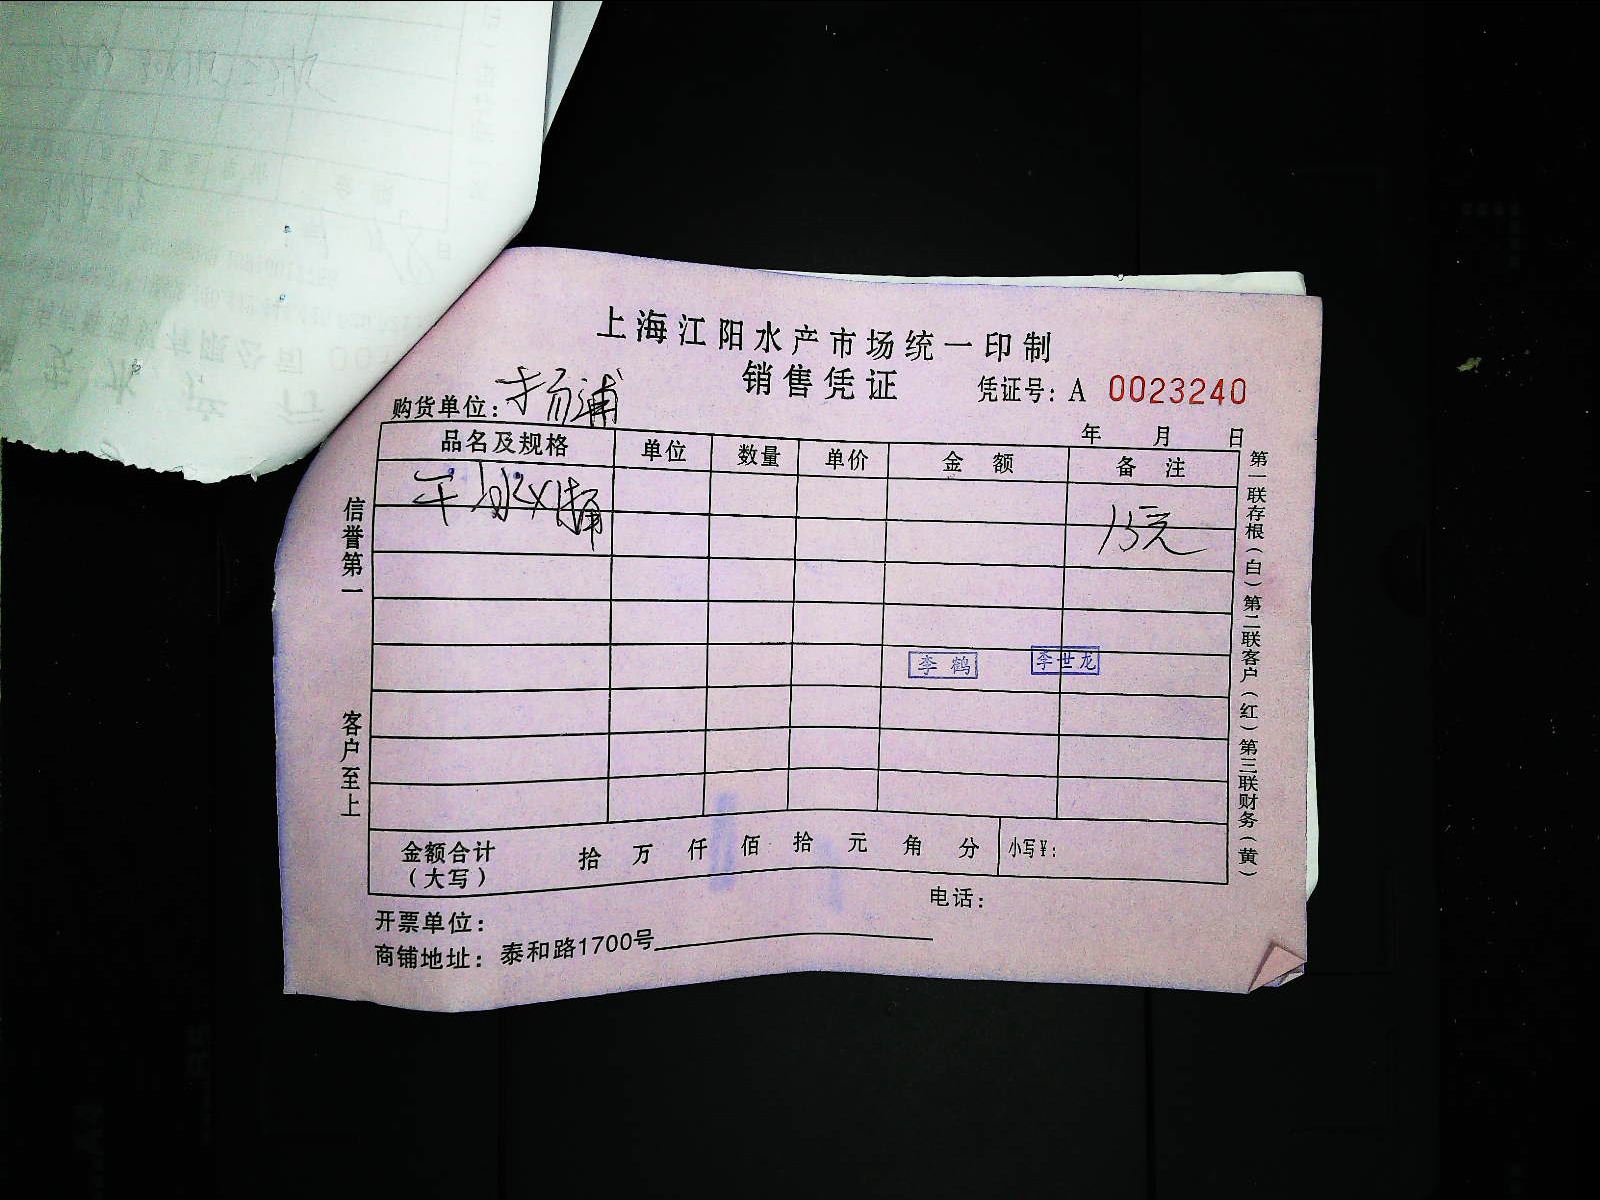 上海江阳水产市场统一印制
销售凭证
凭证号：A 0023240
购货单位：杨浦
年 月 日
品名及规格 单位 数量 单价 金 额 备 注
干冰X1桶
15元
李 鹤 李世龙
金额合计（大写） 拾 万 仟 佰 拾 元 角 分 小写¥：
开票单位： 电话：
商铺地址：泰和路1700号
信誉第一 客户至上
第一联存根（白）第二联客户（红）第三联财务（黄）